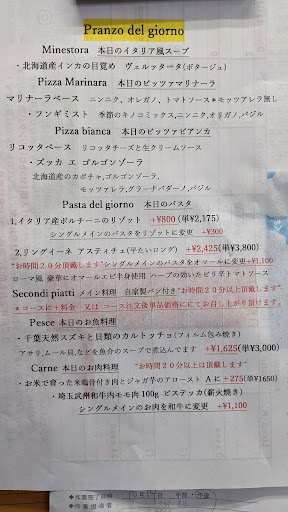 Pranzo del giorno
Minestora 本日のイタリア風スープ
・北海道産インカの目覚め ヴェルッタータ(ポタージュ)
Pizza Marinara 本日のピッツァマリナーラ
マリナーラベース ニンニク、オレガノ、トマトソース*モッツアレラ無し
・フンギミスト 季節のキノコミックス,ニンニク,オリガノ,バジル
Pizza bianca 本日のピッツァビアンカ
リコッタベース リコッタチーズと生クリームソース
・ズッカ エ ゴルゴンゾーラ
北海道産のカボチャ,ゴルゴンゾーラ,
モッツァレラ,グラーナパダーノ,バジル
Pasta del giorno 本日のパスタ
1,イタリア産ポルチーニのリゾット +¥800 (単¥2,175)
シングルメインのパスタをリゾットに変更 +¥300
2,リングイーネ アスティチェ(平たいロング) +2,425(単¥3,800)
"お時間20分頂戴します"シングルメインのパスタをオマールに変更+¥1,100
ローマ風 豪華にオマールエビ半身使用 ハーブの効いたピリ辛トマトソース
Secondi piatti メイン料理 自家製パン付き"お時間20分頂戴します"
*コースに+料金 又は コース注文後単品価格にてお召し上がり頂けます。
Pesce 本日のお魚料理
・千葉天然スズキと貝類のカルトッチョ(フィルム包み焼き)
アサリ,ムール貝,などを魚介のスープで煮込んでます +¥1,625(単¥3,000)
Carne 本日のお肉料理 "お時間20分以上頂戴します"
・お米で育った米鶏骨付き肉とジャガ芋のアロースト Aに+275(単¥1650)
・埼玉武州和牛内モモ肉 100g ビステッカ(薪火焼き)
シングルメインのお肉を和牛に変更 +¥1,100
★作業完了日時
午前・午後
★作業担当者